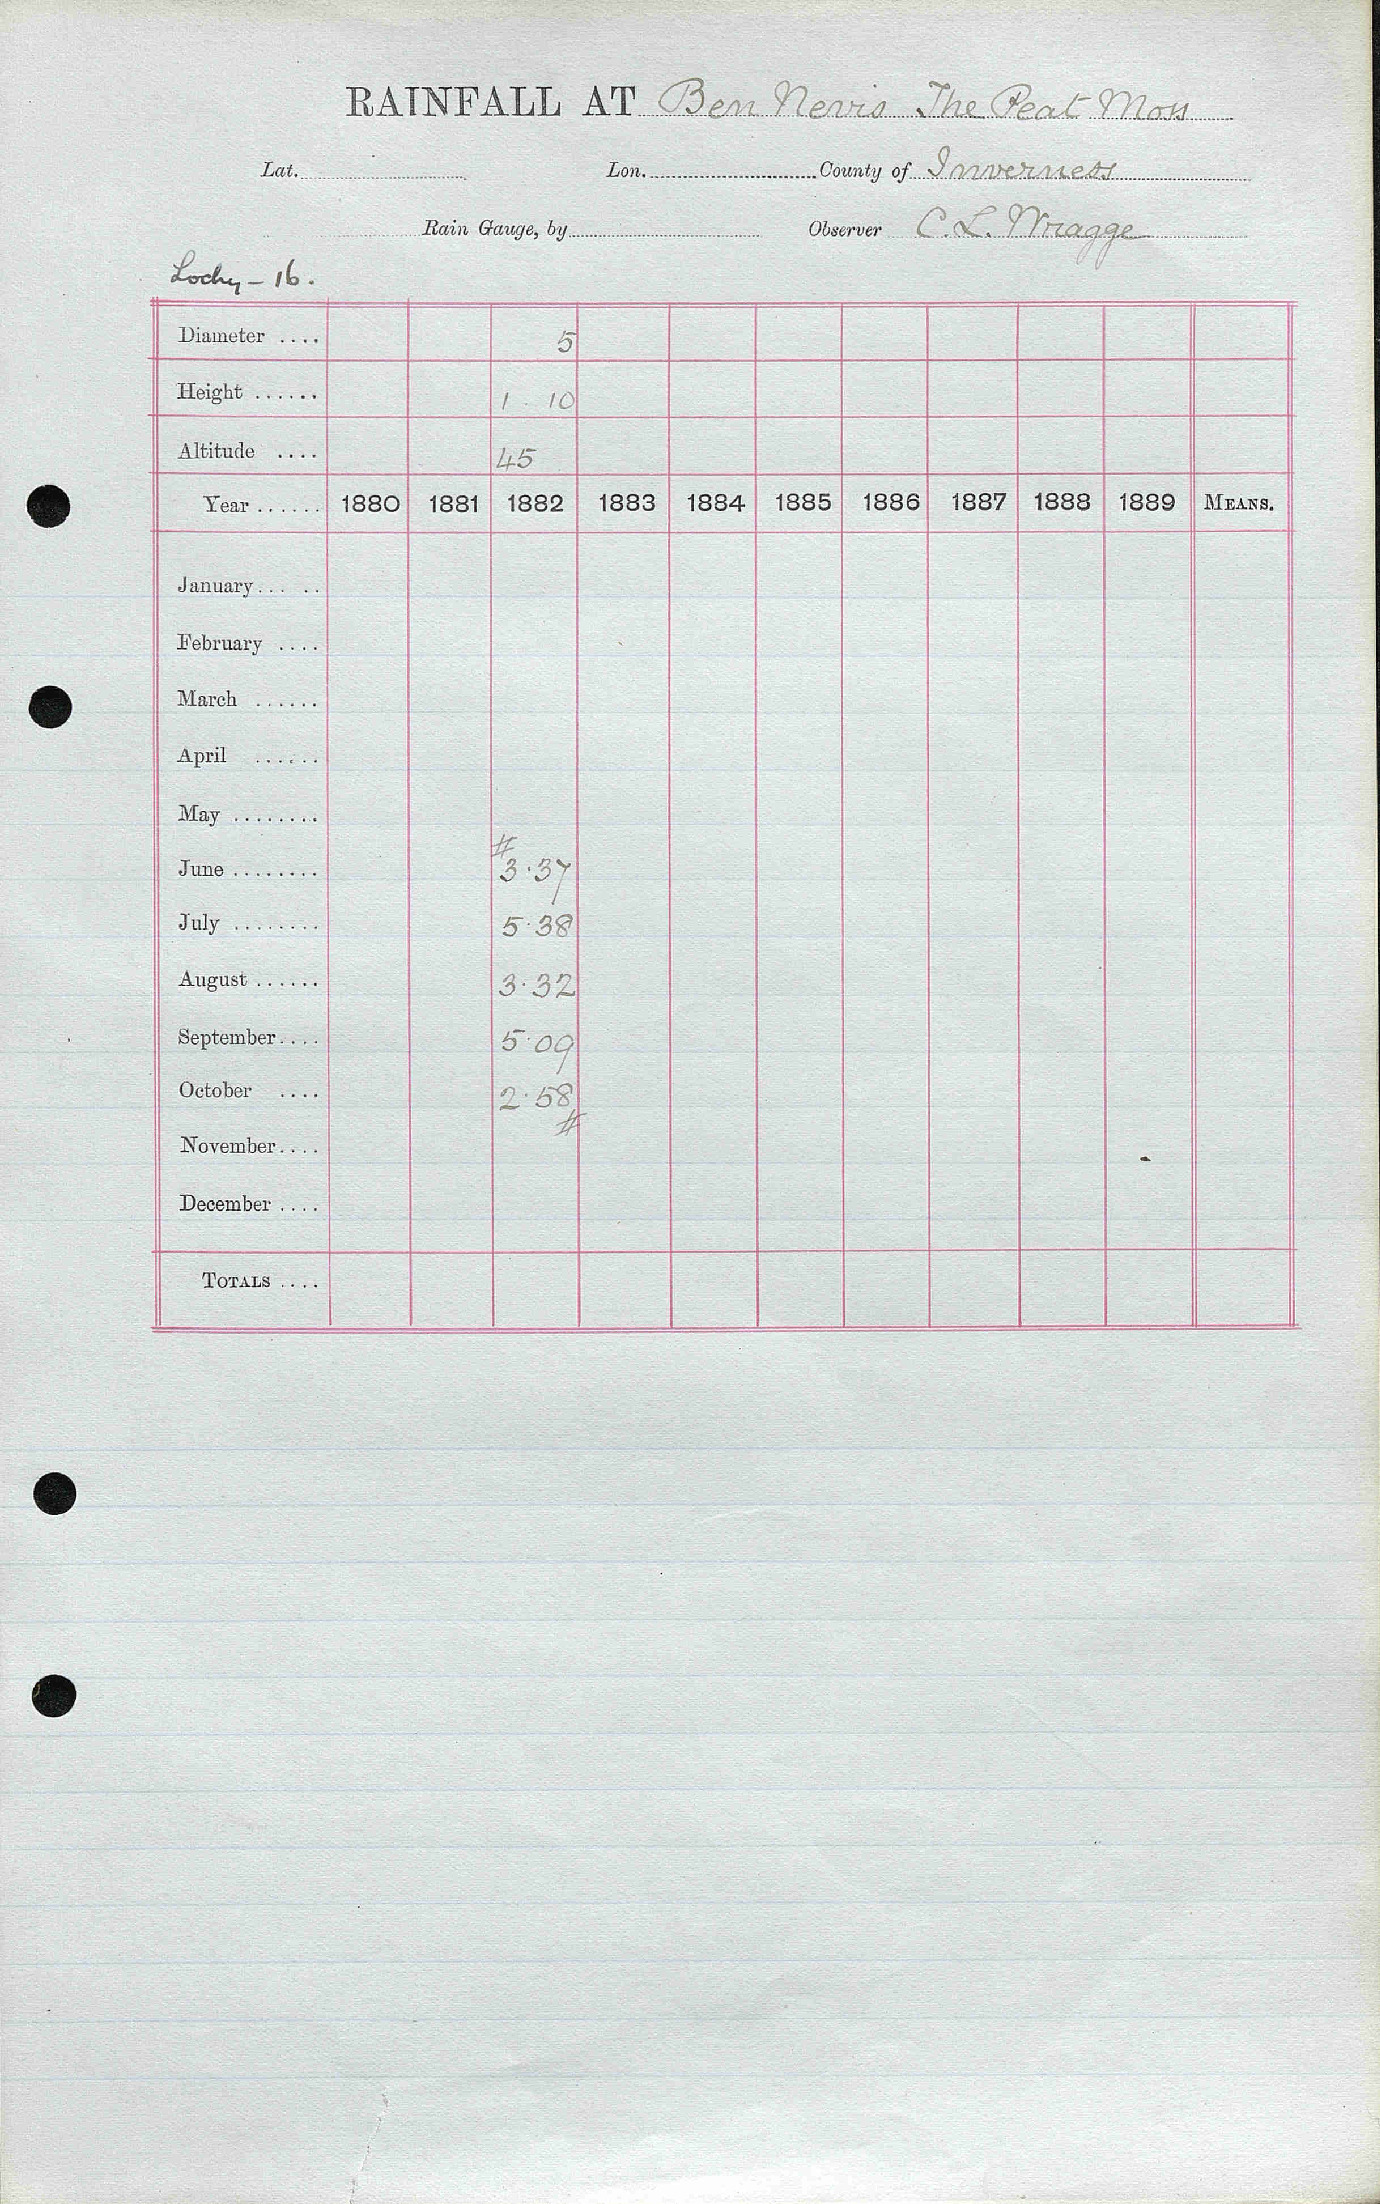 RAINFALL AT Ben Nevis The Peat Moss
Lat. Lon. County of Inverness
Rain Gauge, by Observer C. L. Wragge
Lochy - 16.
Diameter .... 5
Height ...... 1 10
Altitude .... 45
Year ...... 1880 1881 1882 1883 1884 1885 1886 1887 1888 1889 MEANS.
January... ..
February ....
March ......
April ......
May ........
#
June ........ 3.37
July ........ 5.38
August ...... 3.32
September.... 5.09
October .... 2.58
#
November....
December ....
TOTALS ....